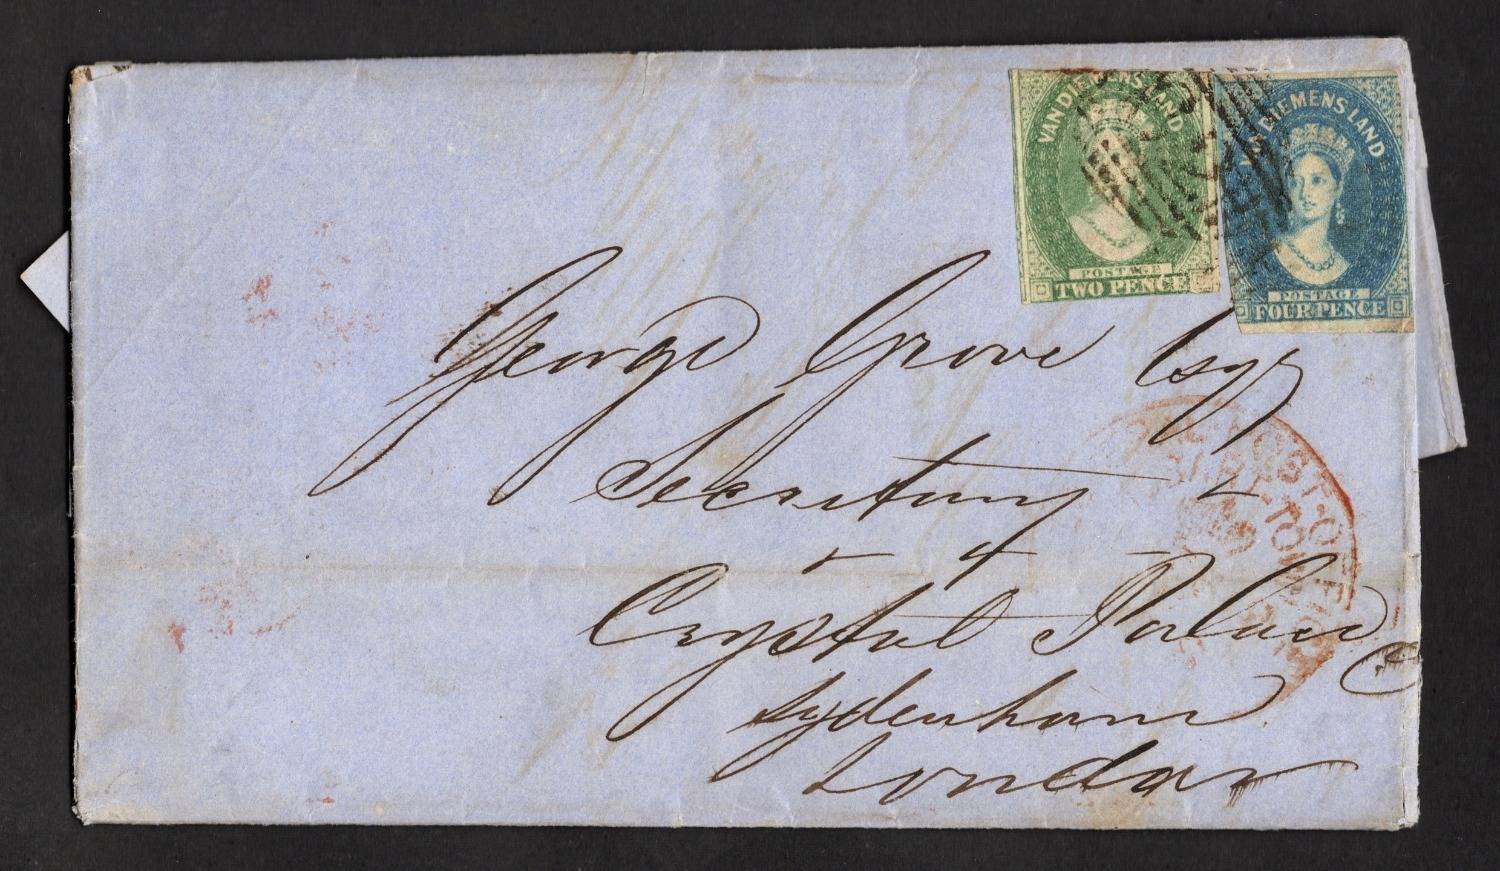 VAN DIEMENS LAND
POSTAGE
TWO PENCE
VAN DIEMENS LAND
POSTAGE
FOUR PENCE
George Grove Esqr
Secretary
Crystal Palace
Sydenham
London
POST-OFFICE